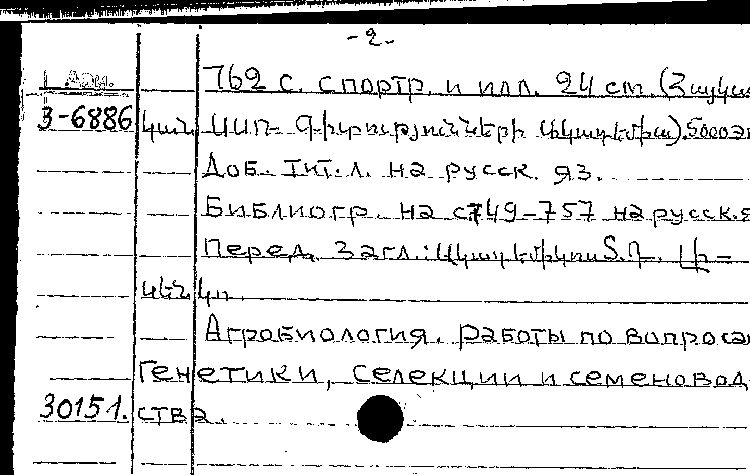 -2-
762 с. с портр. и илл. 24 cm. (Հայկա
3-6886 կան ՍՍՌ Գիտությունների Ակադեմիա). 5000 эк
Доб. тит. л. на русск. яз.
Библиогр. на с 749-757 на русск. я
Перед. загл.: Ակադեմիկոս Տ. Դ. Լի-
սենկո.
Агробиология. Работы по вопроса
генетики, селекции и семеновод
30151. ства.